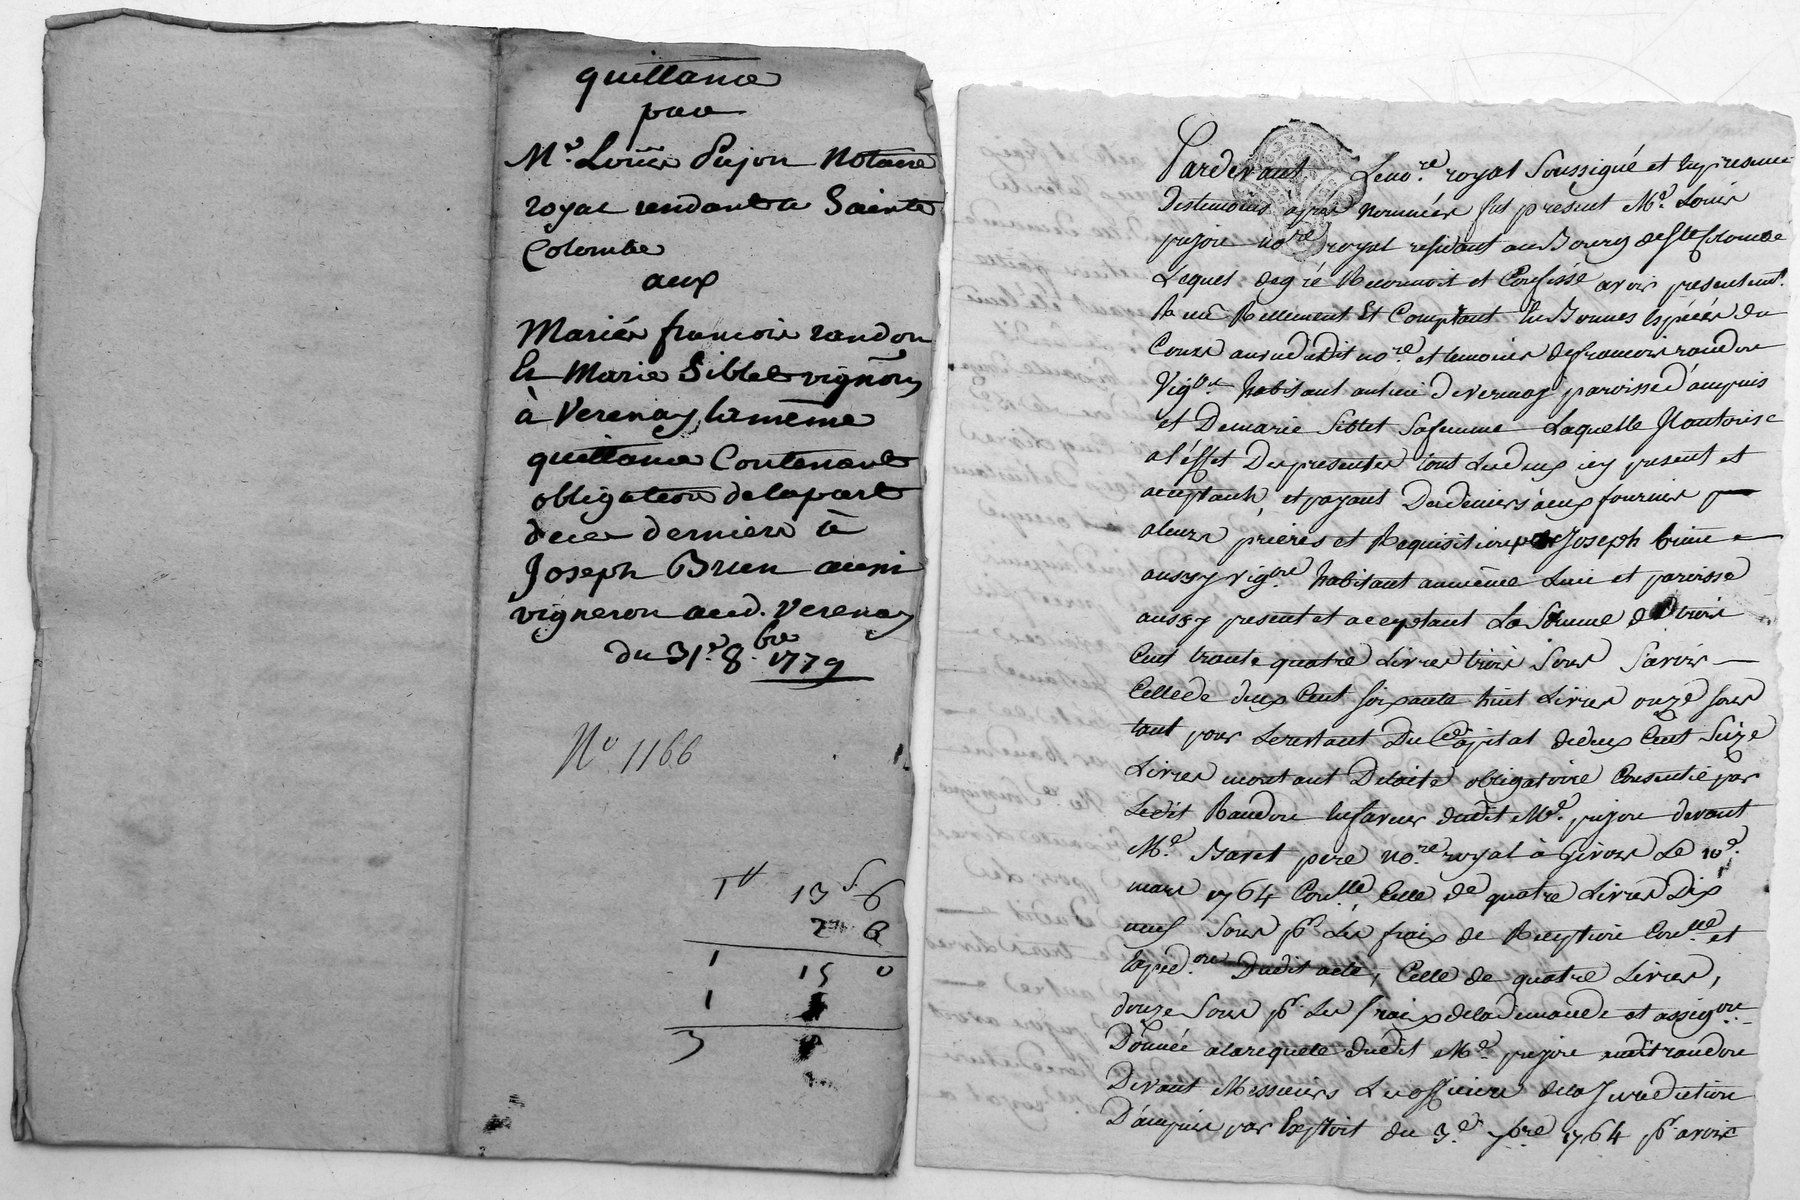 quittance
par
Me. Louis Pujon Notaire
royal rendante a Sainte
Colombe
aux
Mariés francois randon
Et Marie Siblet vignons
à Verenay, la même
quittance Contenant
obligation de la part
de ces derniers à
Joseph Brun aussi
vigneron aud. Verenay
du 31e. 8.bre 1779
No 1166
1# 13 s 6
2 6
1 15 0
1
3
Pardevant Le no.re royal Soussigné et En presence
Des temoins après nommées fut présent Me. Louis
pujon no.re royal résidant au Bourg de Ste Colombe
Lequel de gré Reconnoit et Confesse avoir présentemt.
Reçu Réellement Et Comptant En Bonnes Espéces du
Cours au vu dudit no.re et temoins de francois randon
Vig.on habitant au lieu de verenay paroisse d'ampuis
et De marie Siblet Sa femme Laquelle Il autorise
a l'éffet Des presentes tout Les deux icy present et
acceptants, et payant Des deniers à eux fournis p
a leurs priéres et Requisitions par Joseph brun
aussy vig.on habitant au même Lieu et paroisse
aussy present et acceptant La Somme De trois
Cent trente quatre Livres trois Sous Savoir
Celle de deux Cent soixante huit Livres onze sous
tant pour Le restant Du Capital de deux Cent Seize
Livres montant De la ite obligatoire Consentie par
Ledit Randon En faveur dudit Me. pujon devant
Me. Baret pere no.re royal à Givors Le 10e.
mars 1764 Con.llé, Celle de quatre Livres Dix
neuf Sous pr. Les fraix de Reception Con.lle et
Exped.on Dudit acte, Celle de quatre Livres,
douze Sous pr. Les fraix de la demande et assig.on
Donnée a la requete dudit Me. pujon audit randon
Devant Messieurs Les officiers de la Jurediction
D'ampuis par Exploit du 3e. 7bre 1764 pr. avoir